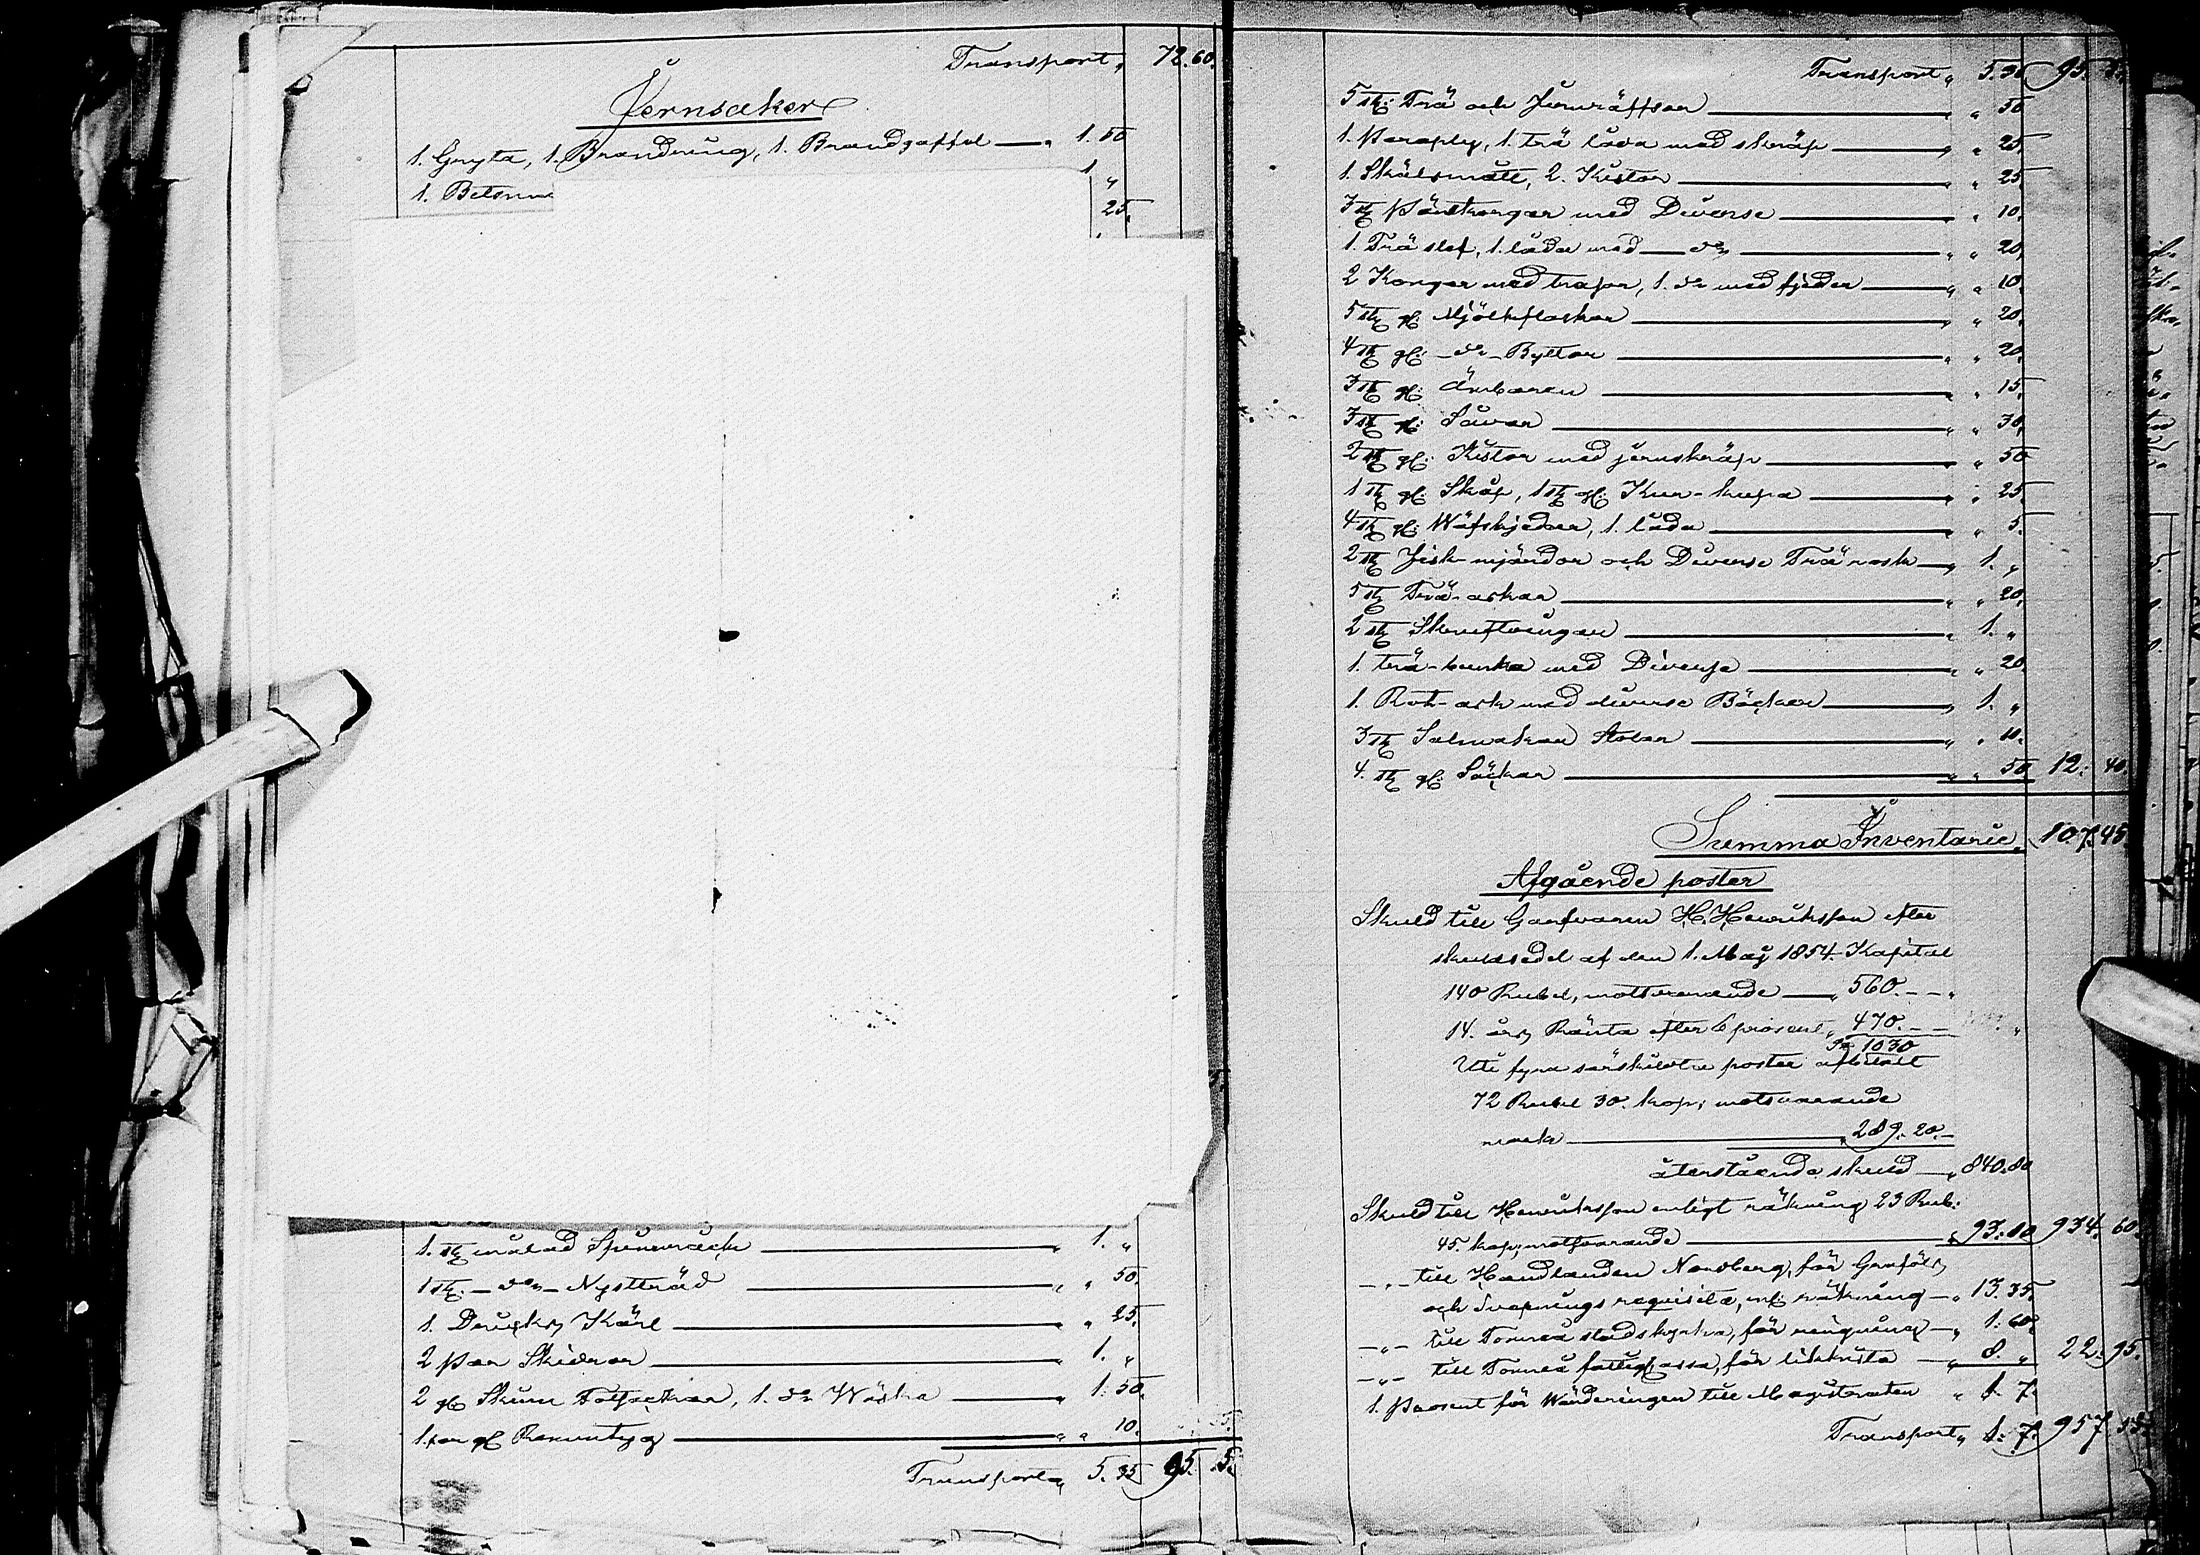 Transport, 72.60.
Jernsaker
1. Gryta, 1. Brandring, 1. Brandgaffel — „ 1. 50
1. Betsm
1 „
25.
1. st målad Spinnråck — „ 1. „
1 st. — do — Nystträd — „ „ 50.
1. Kärl — „ „ 25.
2 Par Skidor — „ 1. „
2 gl Skinn, 1. do Wäska — „ 1. 50.
1. par gl — „ „ 10.
Transport „ 5. 35 95. 5.
Transport „ 5. 35 95. 5.
5 st. Trä och Jernräfsor — „ „ 50
1. Paraply, 1. trä låda med skräp — „ „ 25.
1. Skålsmått, 2. Kistor — „ „ 25.
3 st Pärtkorgar med Diverse — „ „ 10.
1. Trä slef, 1. låda med — do — „ „ 20.
2 Korgar med trasor, 1. do med fjäder — „ „ 10.
5 st gl. Mjölkflaskor — „ „ 20.
4 st gl. — do — Byttor — „ „ 20.
3 st gl. Ämbaren — „ „ 15.
3 st gl. Såar — „ „ 30.
2 st gl. Kistor med jernskräp — „ „ 50
1 st gl. Skåp, 1 st gl. — „ „ 25.
4 st gl. Wäfskjedar, 1. låda — „ „ 5.
2 st Fisk-mjärdor och Diverse Trä rask — „ 1. „
5 st Trä-askar — „ „ 20.
2 st Skruftvingar — „ 1. „
1. trä-bunke med Diverse — „ „ 20
1. med diverse Böcker — „ 1. „
3 st Stolar — „ „ 10.
4. st gl. Säckar — „ „ 50 12. 40.
Summa Inventarie, 107.45.
Afgående poster
Skuld till Garfvaren H. Henriksson efter
skuldsedel af den 1. Maj 1854. Kapital
140 Rubel, motsvarande — „ 560. — — „
14. års Ränta efter 6 prosent „ 470. — —
1030
Uti fyra särskildta poster afbetalt
72 Rubel 30. kop; motsvarande
mark — „ 289. 20. —
återstående skuld — „ 840. 80
Skuld till Henriksson enligt räkning 23 Rub:
45. kop; motsvarande — „ 93. 80 934. 60.
— „ — till Handlanden Nordberg, för Garföl
och Svepnings requisita, enl: räkning — „ 13. 35.
— „ — till Torneå stadskyrka, för ringning — „ 1. 60.
— „ — till Torneå fattigkassa, för likkista — „ 8. „ 22. 95.
1. Prosent för Wärderingen till Magistraten „ 1. 7.
Transport „ 1. 7. 957. 55.